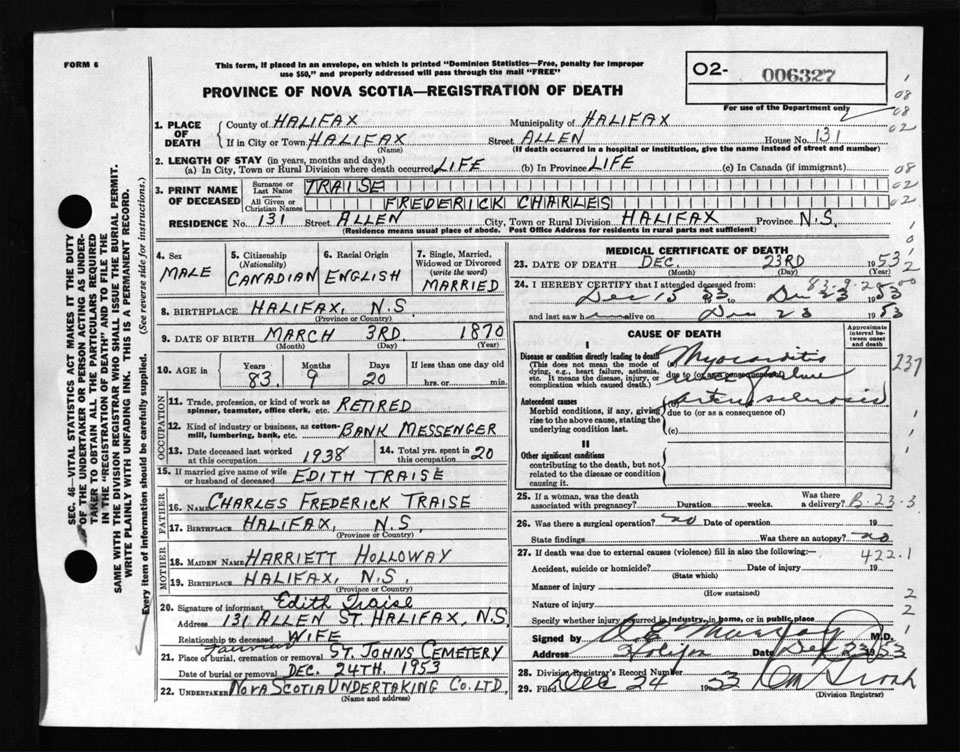 FORM 6
This form, if placed in an envelope, on which is printed "Dominion Statistics—Free, penalty for improper
use $50," and properly addressed will pass through the mail "FREE"
PROVINCE OF NOVA SCOTIA—REGISTRATION OF DEATH
O2- 006327
For use of the Department only
1. PLACE OF DEATH County of HALIFAX Municipality of HALIFAX
If in City or Town HALIFAX Street ALLEN House No. 131
(Name) (If death occurred in a hospital or institution, give the name instead of street and number)
2. LENGTH OF STAY (in years, months and days)
(a) In City, Town or Rural Division where death occurred LIFE (b) In Province LIFE (c) In Canada (if immigrant)
3. PRINT NAME OF DECEASED Surname or Last Name TRAISE
All Given or Christian Names FREDERICK CHARLES
RESIDENCE No. 131 Street ALLEN City, Town or Rural Division HALIFAX Province N.S.
(Residence means usual place of abode. Post Office Address for residents in rural parts not sufficient)
SEC. 46—VITAL STATISTICS ACT MAKES IT THE DUTY
OF THE UNDERTAKER OR PERSON ACTING AS UNDER-
TAKER TO OBTAIN ALL THE PARTICULARS REQUIRED
IN THE "REGISTRATION OF DEATH" AND TO FILE THE
SAME WITH THE DIVISION REGISTRAR WHO SHALL ISSUE THE BURIAL PERMIT.
WRITE PLAINLY WITH UNFADING INK. THIS IS A PERMANENT RECORD.
Every item of information should be carefully supplied. (See reverse side for instructions.)
4. Sex MALE
5. Citizenship (Nationality) CANADIAN
6. Racial Origin ENGLISH
7. Single, Married, Widowed or Divorced (write the word) MARRIED
8. BIRTHPLACE HALIFAX, N.S
(Province or Country)
9. DATE OF BIRTH MARCH 3RD. 1870
(Month) (Day) (Year)
10. AGE in Years 83. Months 9 Days 20 If less than one day old hrs. or min.
OCCUPATION
11. Trade, profession, or kind of work as spinner, teamster, office clerk, etc. RETIRED
12. Kind of industry or business, as cotton-mill, lumbering, bank, etc. BANK MESSENGER
13. Date deceased last worked at this occupation 1938 14. Total yrs. spent in this occupation 20
15. If married give name of wife or husband of deceased EDITH TRAISE
FATHER
16. Name CHARLES FREDERICK TRAISE
17. Birthplace HALIFAX, N.S.
(Province or Country)
MOTHER
18. MAIDEN NAME HARRIETT HOLLOWAY
19. BIRTHPLACE HALIFAX, N.S.
(Province or Country)
20. Signature of informant Edith Traise
Address 131 ALLEN ST. HALIFAX, N.S,
Relationship to deceased WIFE
21. Place of burial, cremation or removal ST. JOHNS CEMETERY
Date of burial or removal DEC. 24TH. 1953
22. UNDERTAKER NOVA SCOTIA UNDERTAKING CO. LTD.
(Name and address)
MEDICAL CERTIFICATE OF DEATH
23. DATE OF DEATH DEC. 23RD 1953
(Month) (Day) (Year)
24. I HEREBY CERTIFY that I attended deceased from:
Dec 15 53 to Dec 23 1953
and last saw him alive on Dec 23 1953
CAUSE OF DEATH
Approximate interval between onset and death
I
Disease or condition directly leading to death (a) Myocarditis
(This does not mean the mode of dying, e.g., heart failure, asthenia, etc. It means the disease, injury, or complication which caused death.)
due to (or as consequence of) failure
Antecedent causes (b) Arteriosclerosis
Morbid conditions, if any, giving rise to the above cause, stating the underlying condition last.
due to (or as a consequence of)
(c)
II
Other significant conditions
contributing to the death, but not related to the disease or condition causing it.
25. If a woman, was the death associated with pregnancy? Duration: weeks. Was there a delivery?
B-23-3
26. Was there a surgical operation? no Date of operation 19
State findings Was there an autopsy? no
27. If death was due to external causes (violence) fill in also the following:—
422.1
Accident, suicide or homicide? Date of injury 19
(State which)
Manner of injury
(How sustained)
Nature of injury
Specify whether injury occurred in industry, in home, or in public place
Signed by Murray M.D.
Address Halifax Date Dec 23/53
28. Division Registrar's Record Number
29. Filed Dec 24 1953
(Division Registrar)
237